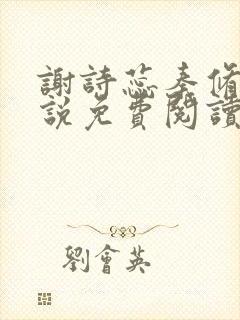 謝詩蕊秦脩
說免費閱讀
劉會英